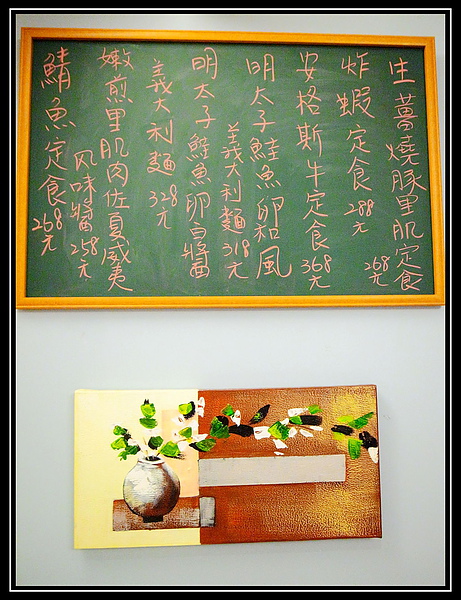 生薑燒豚里肌定食
268元
炸蝦定食 288元
安格斯牛定食 368元
明太子鮭魚卵和風
義大利麵 318元
明太子鮭魚卵白醬
義大利麵 328元
嫩煎里肌肉佐夏威夷
風味醬 258元
鯖魚定食 268元